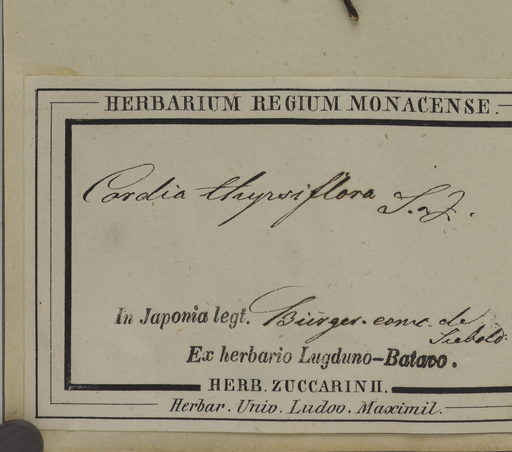 HERBARIUM REGIUM MONACENSE.
Cordia thyrsiflora S. & Z.
In Japonia legt. Bürger. com. de
Siebold
Ex herbario Lugduno-Batavo.
HERB. ZUCCARINII.
Herbar. Univ. Ludov. Maximil.